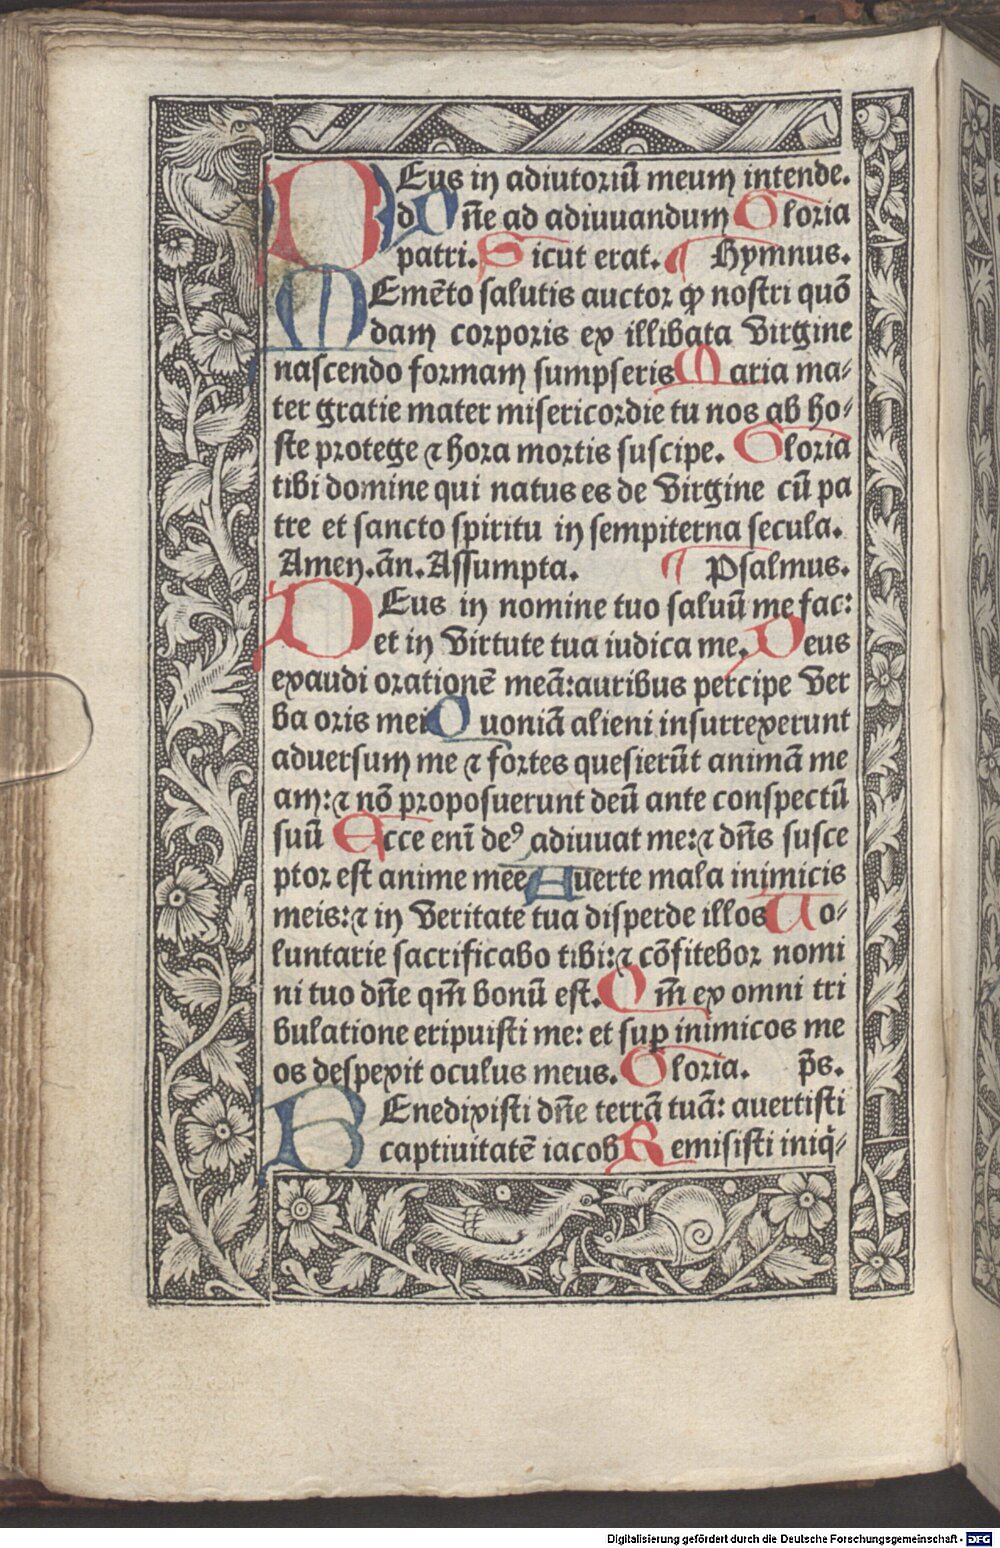 DEus in adiutoriū meum intende.
dOñe ad adiuuandum Gloria
patri. Sicut erat. ¶ Hymnus.
MEmēto salutis auctor ꝙ nostri quō
dam corporis ex illibata Virgine
nascendo formam sumpseris Maria ma⸗
ter gratie mater misericordie tu nos ab ho⸗
ste protege ⁊ hora mortis suscipe. Gloria
tibi domine qui natus es de Virgine cū pa
tre et sancto spiritu in sempiterna secula.
Amen. añ. Assumpta. ¶ Psalmus.
DEus in nomine tuo saluū me fac:
et in Virtute tua iudica me. Deus
exaudi orationē meā: auribus percipe Ver
ba oris mei Quoniā alieni insurrexerunt
aduersum me ⁊ fortes quesierūt animā me
am: ⁊ nō proposuerunt deū ante conspectū
suū Ecce eni deꝰ adiuuat me: ⁊ dñs susce
ptor est anime mee Auerte mala inimicis
meis: ⁊ in Veritate tua disperde illos Uo⸗
luntarie sacrificabo tibi: ⁊ cōfitebor nomi
ni tuo dñe qm̄ bonū est. Qm̄ ex omni tri
bulatione eripuisti me: et suꝑ inimicos me
os despexit oculus meus. Gloria. p̄s.
BEnedixisti dñe terrā tuā: auertisti
captiuitatē iacob Remisisti iniq̄⸗
Digitalisierung gefördert durch die Deutsche Forschungsgemeinschaft - DFG